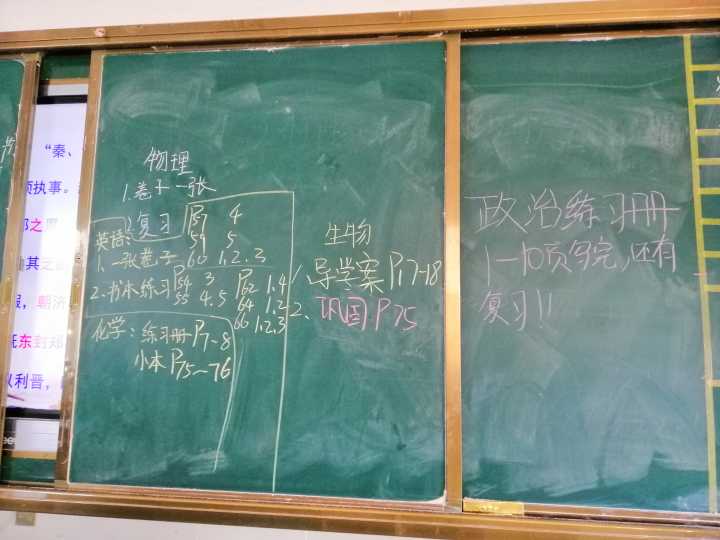 “秦、
执事。
之
其之
朝济
既东封郑
以利晋，
物理
1.卷十一张
2.复习 P57 4
59 5
60 1.2.3
英语:
1.一张卷子
2.书本练习 P54 3 P62 1.4
55 4.5 64 1.2
66 1.2.3
化学：练习册P7~8
小本P75~76
生物
1、导学案P17-18
2、巩固P75
政治练习册
1-10页写完,还有
复习!!